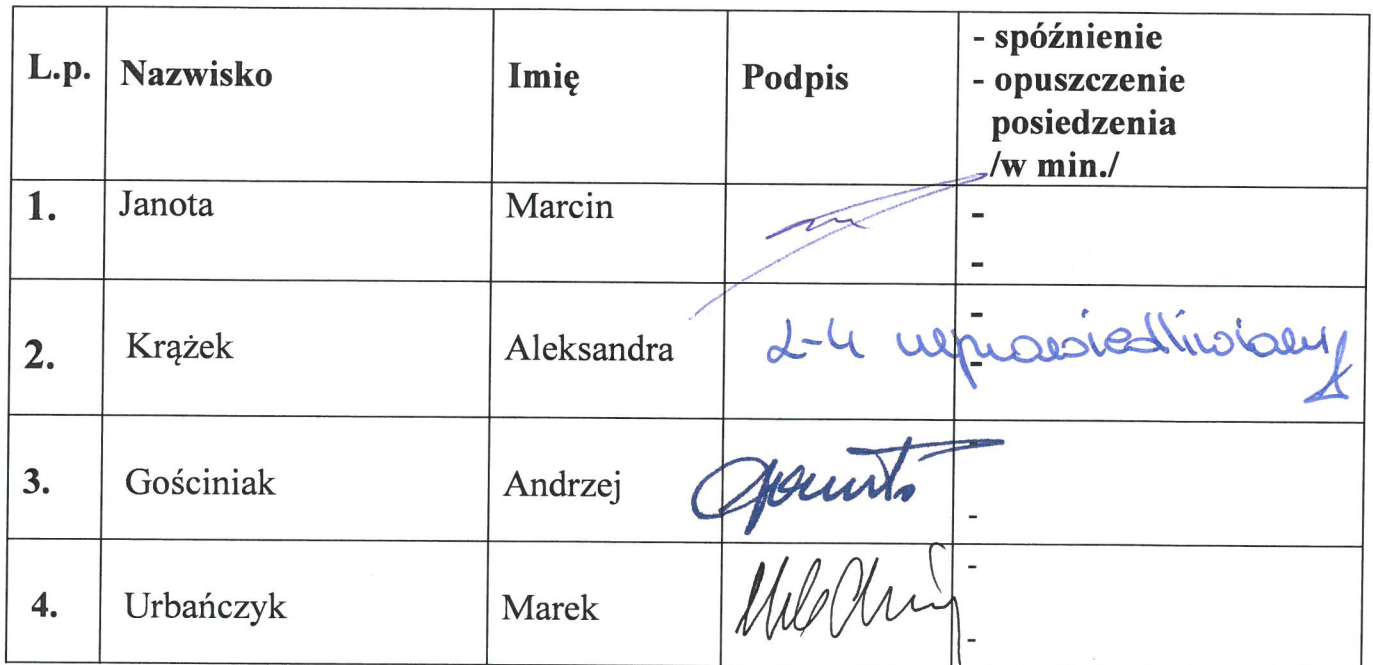 L.p. Nazwisko Imię Podpis - spóźnienie
- opuszczenie
posiedzenia
/w min./
1. Janota Marcin -
-
2. Krążek Aleksandra -
-
3. Gościniak Andrzej
-
4. Urbańczyk Marek -
-